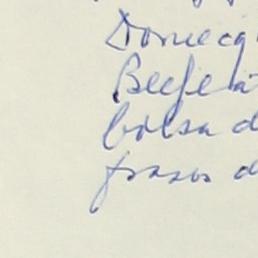 Domecq
Beefea
bolsa d
frasos d